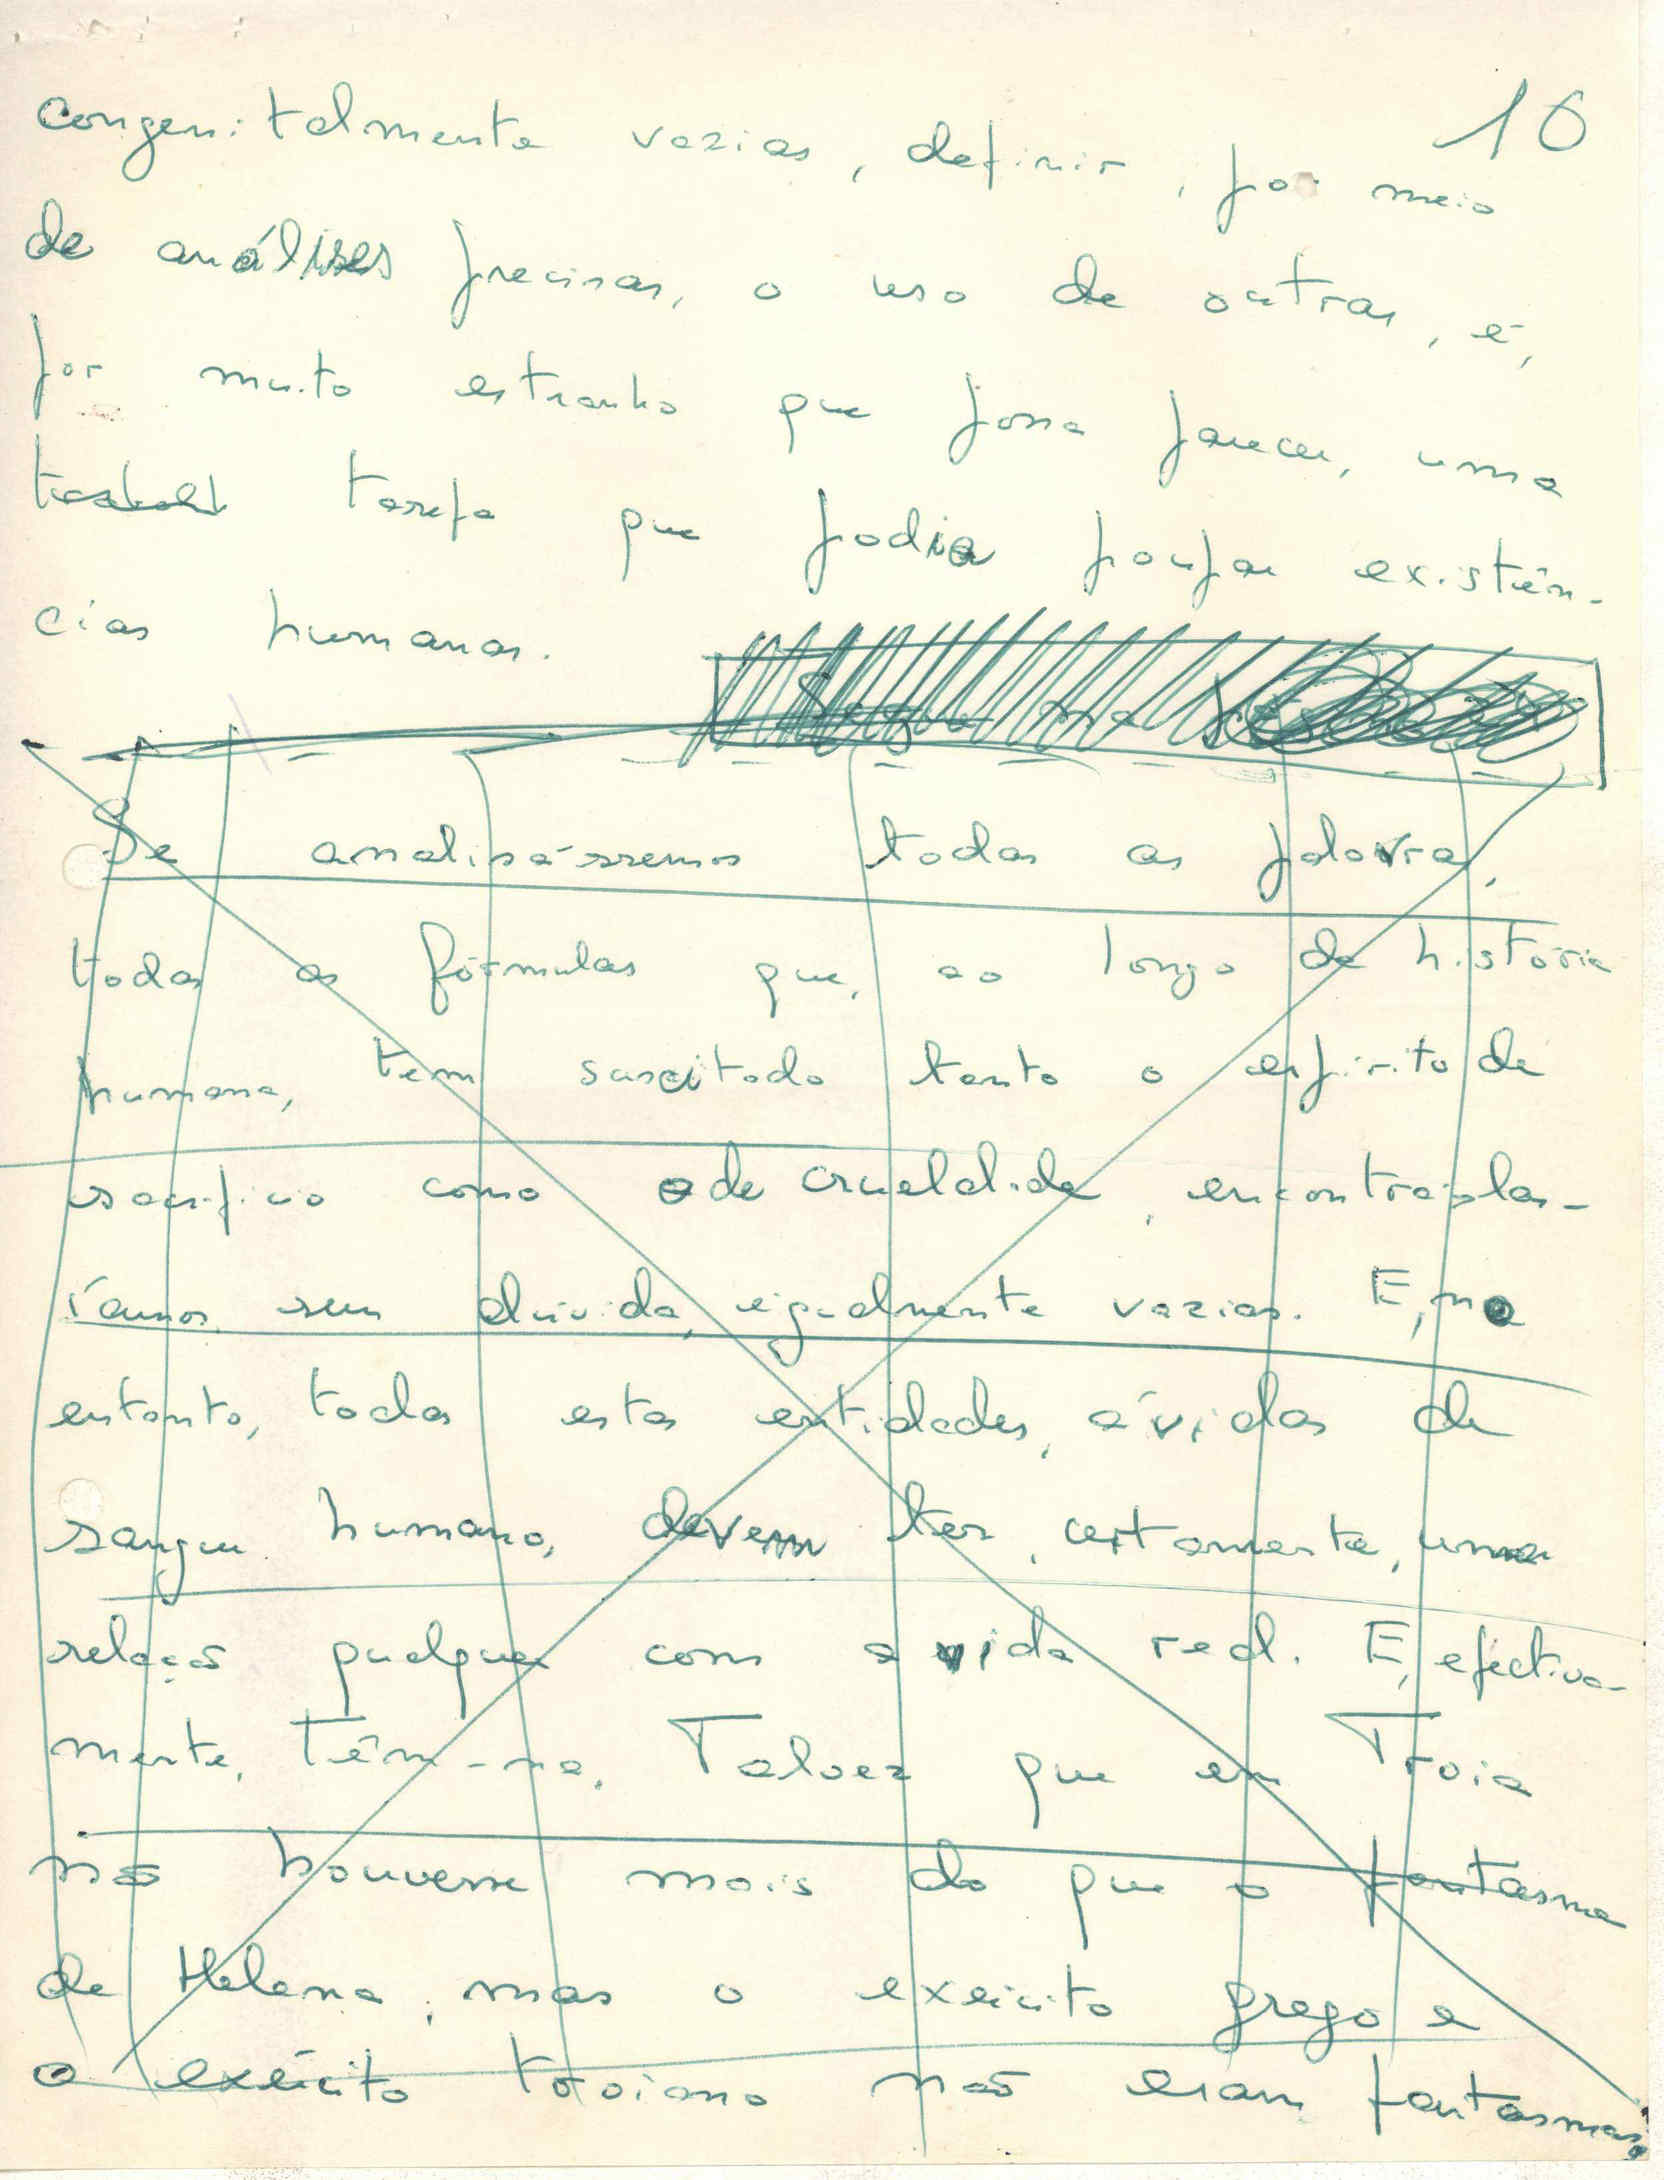 16
congenitalmente vazias, definir, por meio
de análises precisas, o uso de outras, é,
por muito estranho que possa parecer, uma
tarefa que podia poupar existên-
cias humanas.
Segue na
Se analisássemos todas as palavras,
todas as fórmulas que, ao longo da história
humana, tem suscitado tanto o espírito de
sacrifício como o de crueldade, encontrá-las-
íamos, sem dúvida, igualmente vazias. E, no
entanto, todas estas entidades, ávidas de
sangue humano, devem ter, certamente, uma
relação qualquer com a vida real. E, efectiva-
mente, têm-na. Talvez que em Troia
não houvesse mais do que o fantasma
de Helena, mas o exército grego e
o exército troiano não eram fantasmas,